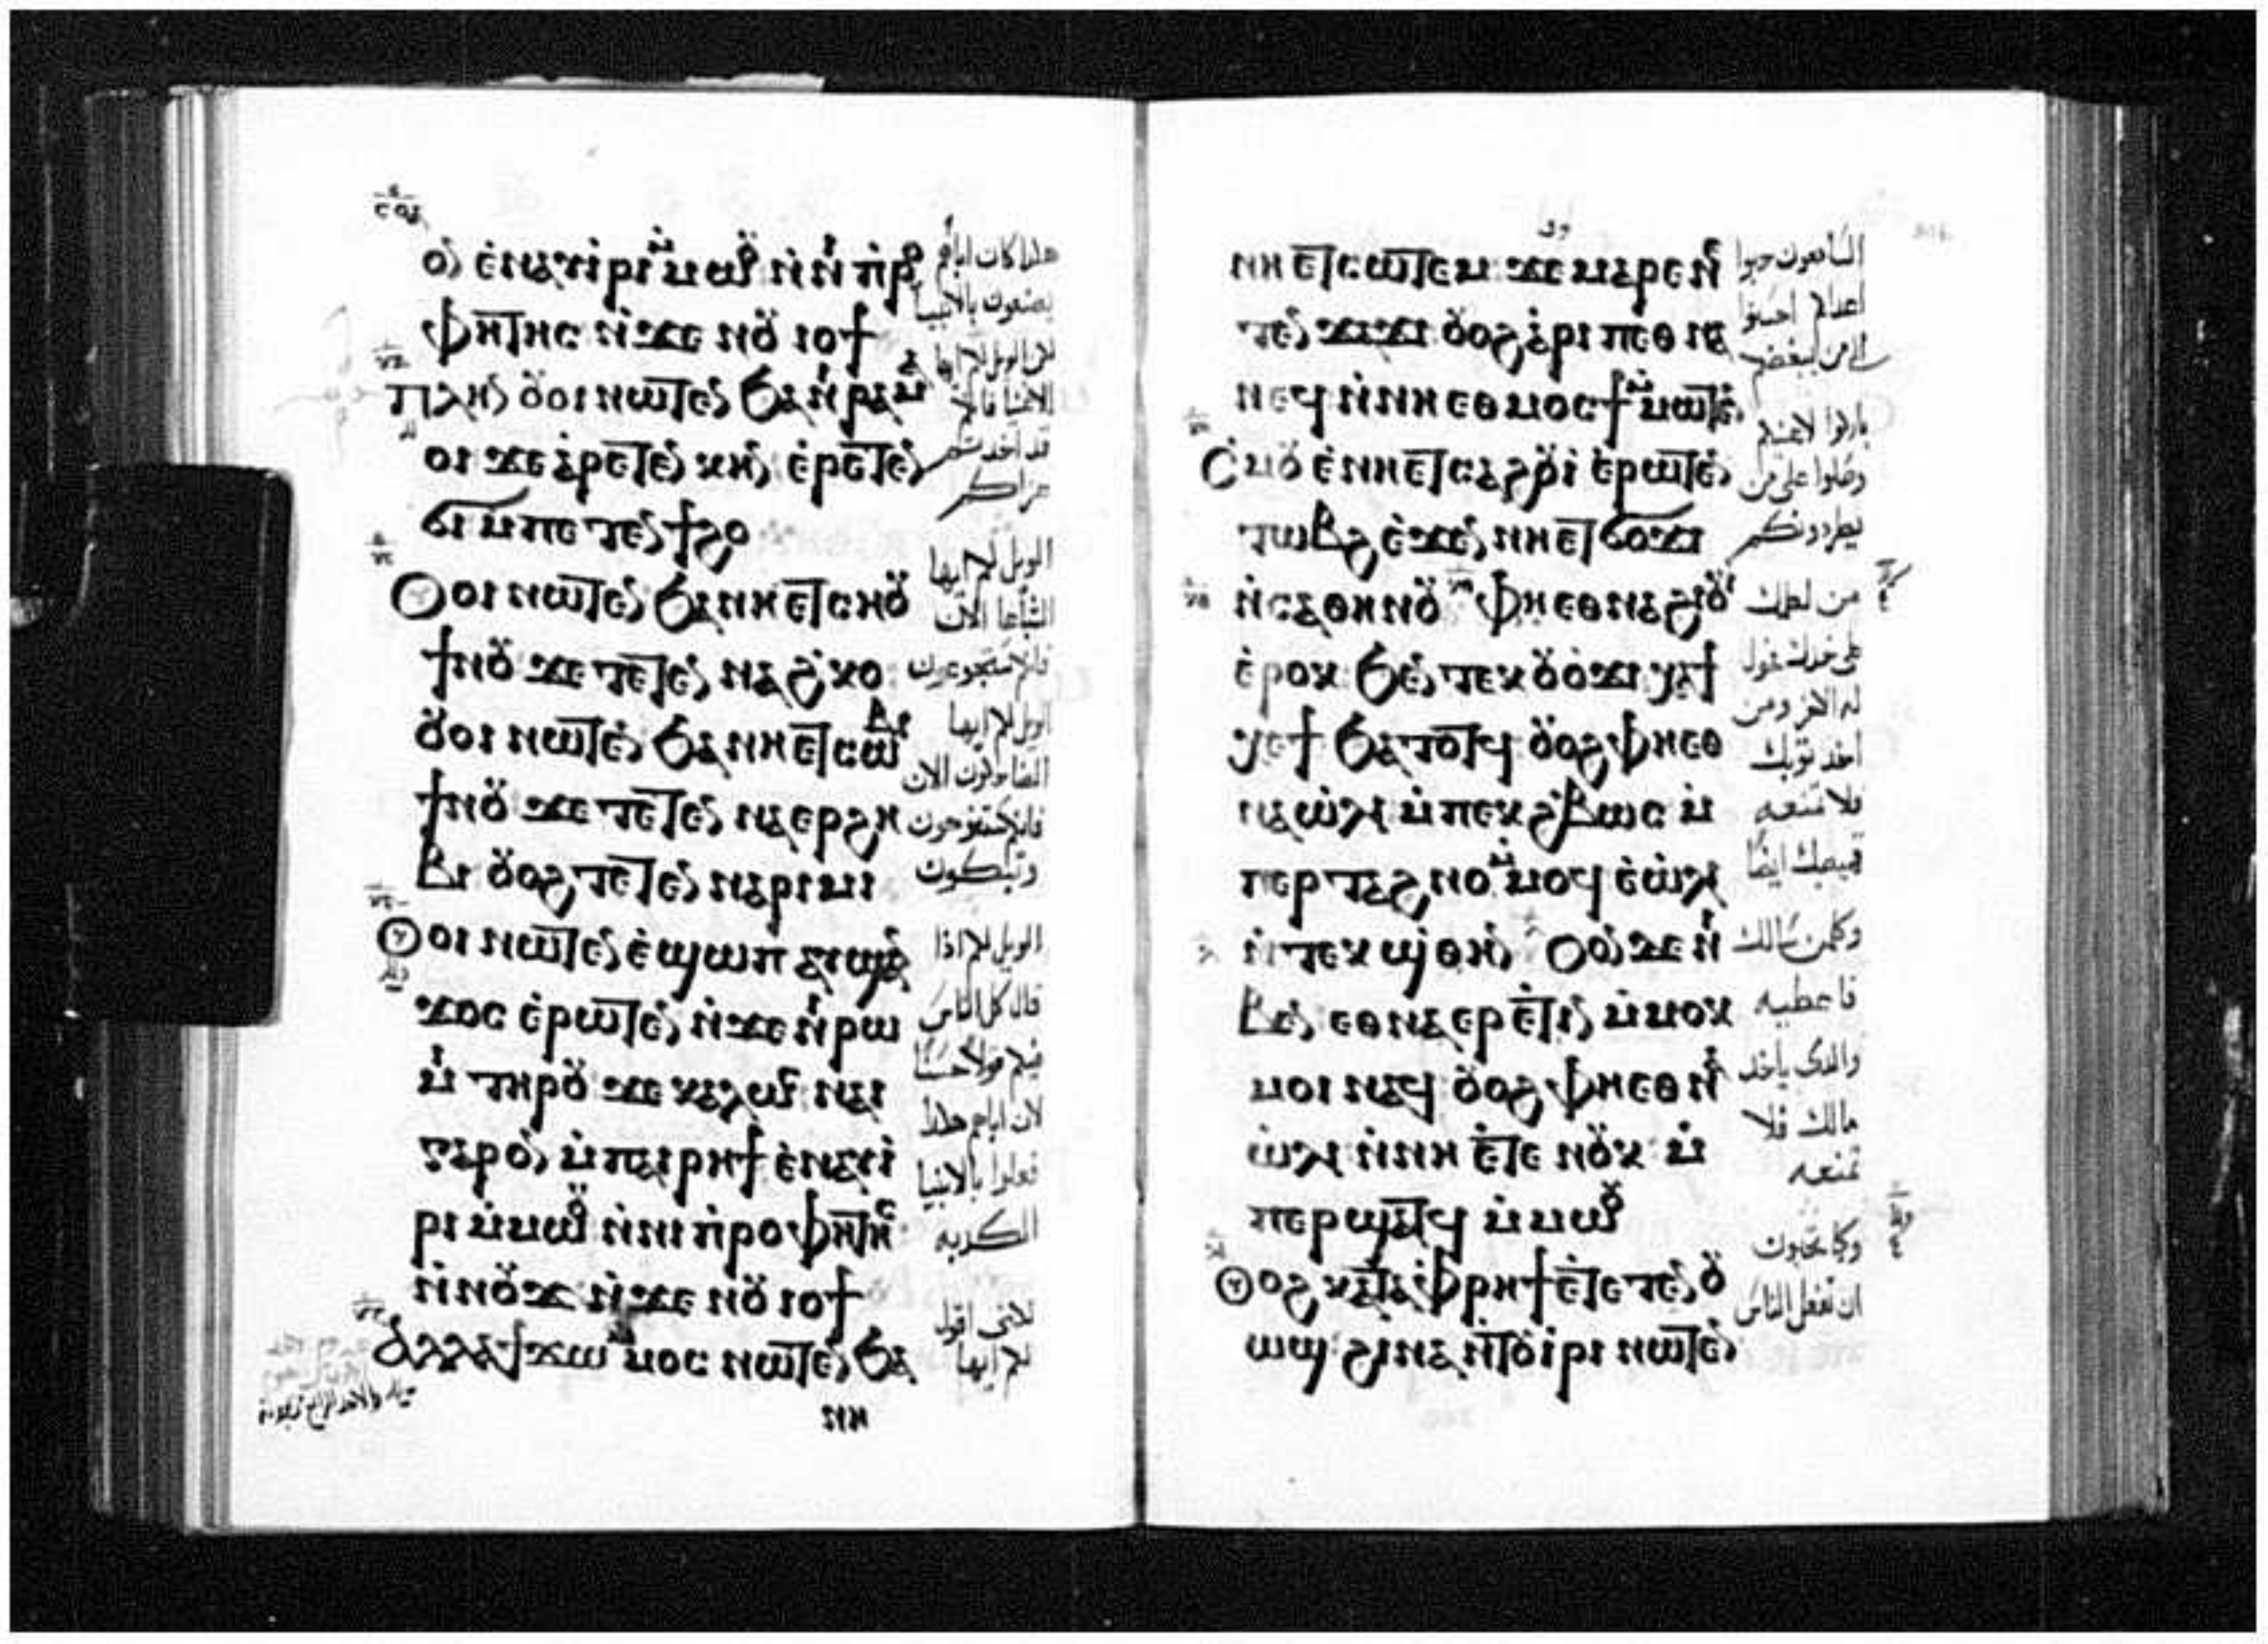 ⲟⲛ ⲉⲛⲁⲩⲓⲣⲓ ⲙⲙⲱⲟⲩ ⲛⲛⲓⲡⲣⲟ
ⲫⲏⲧⲏⲥ ⲛϫⲉ ⲛⲟⲩⲓⲟϯ
ⲡⲗⲏⲛ ⲟⲩⲟⲓ ⲛⲱⲧⲉⲛ ϧⲁ ⲛⲓⲣⲁⲙⲁ
ⲟⲓ ϫⲉ ⲁⲣⲉⲧⲉⲛ ⲕⲏⲛ ⲉⲣⲉⲧⲉⲛ
ϭⲓ ⲙⲡⲉⲧⲉⲛϯϩⲟ
ⲟⲩⲟⲓ ⲛⲱⲧⲉⲛ ϧⲁ ⲛⲏⲉⲧⲥⲏⲟⲩ
ϯⲛⲟⲩ ϫⲉ ⲧⲉⲧⲉⲛⲛⲁϩⲕⲟ
ⲟⲩⲟⲓ ⲛⲱⲧⲉⲛ ϧⲁ ⲛⲏⲉⲧⲥⲱⲃⲓ
ϯⲛⲟⲩ ϫⲉ ⲧⲉⲧⲉⲛⲛⲁⲉⲣϩⲏ
ⲃⲓ ⲟⲩⲟϩ ⲧⲉⲧⲉⲛⲛⲁⲣⲓⲙⲓ
ⲟⲩⲟⲓ ⲛⲱⲧⲉⲛ ⲉϣⲱⲡ ⲁⲩϣⲁⲛ
ϫⲟⲥ ⲉⲣⲱⲧⲉⲛ ⲛϫⲉ ⲛⲓⲣⲱ
ⲙⲓ ⲧⲏⲣⲟⲩ ϫⲉ ⲕⲁⲗⲱⲥ ⲛⲁⲩ
ⲅⲁⲣ ⲟⲛ ⲙⲡⲁⲓⲣⲏϯ ⲉⲛⲁⲩⲓ
ⲣⲓ ⲙⲙⲱⲟⲩ ⲛⲛⲓⲡⲣⲟⲫⲏⲧⲏⲥ
ⲛⲛⲟⲩϫ ⲛϫⲉ ⲛⲟⲩⲓⲟϯ
ⲁⲗⲗⲁ ϯϫⲱ ⲙⲙⲟⲥ ⲛⲱⲧⲉⲛ ϧⲁ
هكذا كان اباؤهم
يصنعون بالانبيا
لكن الويل لكم ايها
الاغنيا فانكم
قد اخذتم
عزاكم
الويل لكم ايها
الشباعا الان
فانكم ستجوعون
الويل لكم ايها
الضاحكون الان
فانكم ستحزنون
وتبكون
الويل لكم اذا
قال كل الناس
فيكم قولا حسنا
لان اباهم هكذا
فعلوا بالانبيا
الكدبه
لاني اقول
لكم ايها
ⲛⲏⲉⲧⲥⲱⲧⲉⲙ ϫⲉ ⲙⲉⲛⲣⲉ ⲛⲉ
ⲧⲉⲛϫⲁϫⲓ ⲟⲩⲟϩ ⲁⲣⲓ ⲡⲉⲑⲛⲁ
ⲛⲉϥ ⲛⲛⲏⲉⲑⲙⲟⲥϯ ⲙⲙⲱⲧⲉⲛ
ⲥⲙⲟⲩ ⲉⲛⲏⲉⲧⲥⲁϩⲟⲩⲓ ⲉⲣⲱⲧⲉⲛ
ⲧⲱⲃϩ ⲉϫⲉⲛ ⲛⲏⲉⲧϭⲟϫⲓ
ⲛⲥⲁⲑⲏⲛⲟⲩ ⲫⲏⲉⲑⲛⲁϩⲓⲟⲩⲓ
ⲉⲣⲟⲕ ϧⲉⲛ ⲧⲉⲕⲟⲩⲟϫⲓ ⲭⲁ ϯ
ⲭⲉϯ ϧⲁⲧⲟⲧϥ ⲟⲩⲟϩ ⲫⲏⲉⲑ
ⲛⲁⲱⲗⲓ ⲙⲡⲉⲕϩⲃⲱⲥ ⲙ
ⲡⲉⲣⲧⲁϩⲛⲟ ⲙⲙⲟϥ ⲉⲱⲗⲓ
ⲛⲧⲉⲕϣⲑⲏⲛ ⲟⲩⲟⲛ ϫⲉ ⲛⲓ
ⲃⲉⲛ ⲉⲑⲛⲁⲉⲣⲉⲧⲓⲛ ⲙⲙⲟⲕ
ⲙⲟⲓ ⲛⲁϥ ⲟⲩⲟϩ ⲫⲏⲉⲑⲛⲁ
ⲱⲗⲓ ⲛⲛⲏ ⲉⲧⲉ ⲛⲟⲩⲕ ⲙ
ⲡⲉⲣϣⲁⲧϥ ⲙⲙⲱⲟⲩ
ⲟⲩⲟϩ ⲕⲁⲧⲁ ⲫⲣⲏϯ ⲉⲧⲉⲧⲉⲛⲟⲩ
ⲱϣ ϩⲓⲛⲁ ⲛⲧⲟⲩⲓⲣⲓ ⲛⲱⲧⲉⲛ
السامعون حبوا
اعداكم احسنوا
الى من يبغضكم
باركوا لاعنيكم
وصلوا على من
يطردونكم
من لطمك
على خدك فحول
له الاخر ومن
اخد توبك
فلا تمنعه
قميصك ايضا
وكلمن سالك
فاعطيه
والدى ياخد
مالك فلا
تمنعه
وكما تحبون
ان تفعل الناس